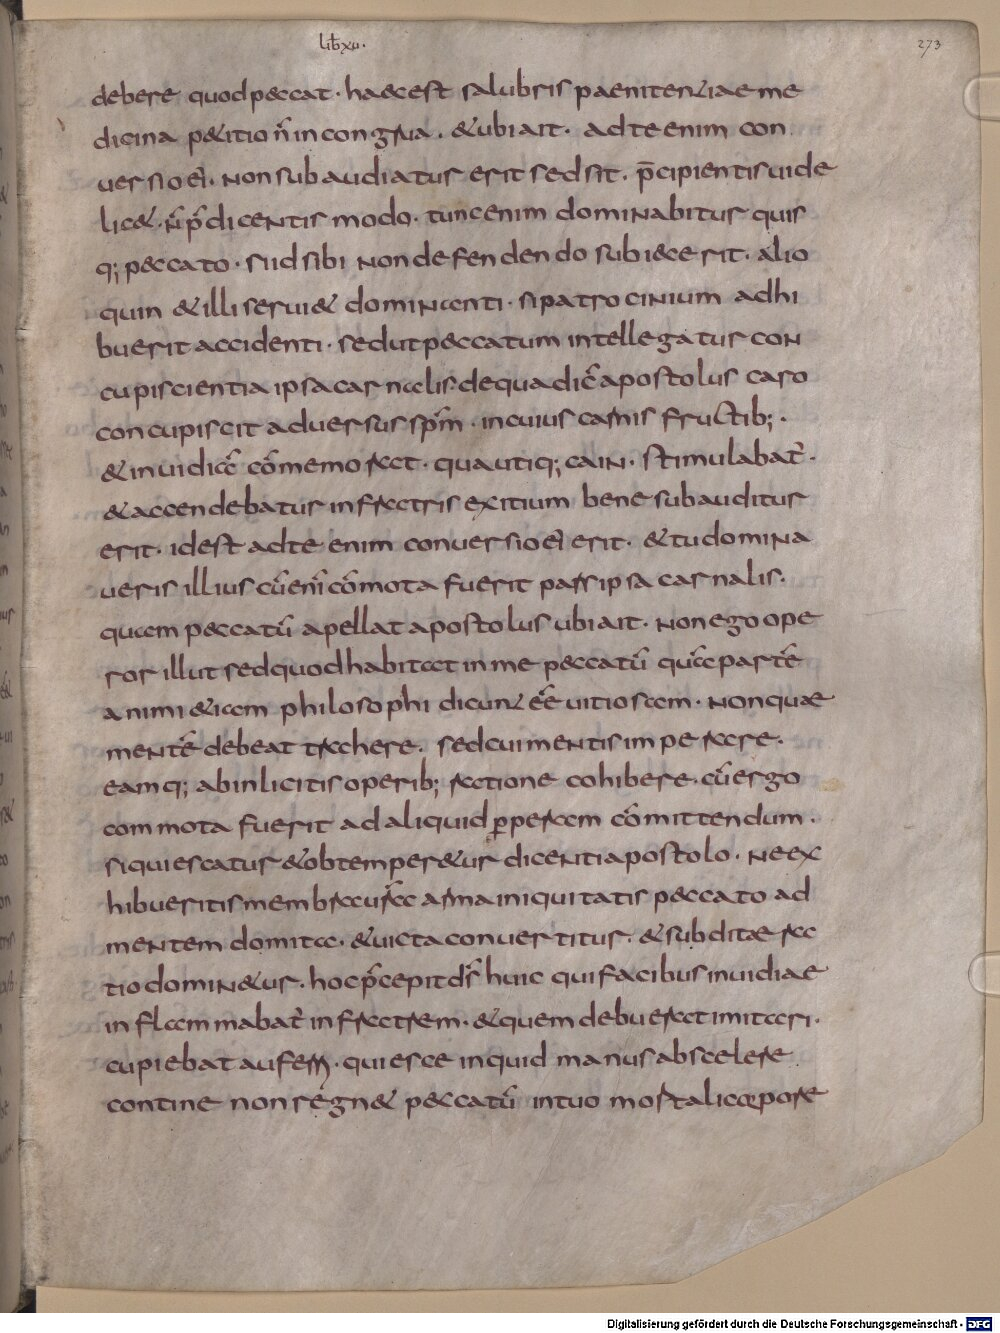 lib xii.
273
debere quod peccat · haec est salubris paenitentiae me
dicina petitio n̄ incongrua . & ubi ait · ad te enim con
uersio ei · non subaudiatur erit sed sit . p̄cipientis uide
lic& · n̄ p̄dicentis modo · tunc enim dominabitur quis
q; peccato · si id sibi non defendendo subiecerit · alio
quin & illi seruiet dominanti · si patrocinium adhi
buerit accidenti · sed ut peccatum intellegatur con
cupiscientia ipsa carnalis · de qua dic̄ apostolus caro
concupiscit aduersus sp̄m · in cuius carnis fructib; ·
& inuidia cōmemorat · qua utiq; cain · stimulabat̄ ·
& accendebatur in fratris exitium bene subauditur
erit · id est ad te enim conuersio ei erit · & tu domina
ueris illius cū enī cōmota fuerit pars ipsa carnalis ·
quam peccatū apellat apostolus ubi ait · non ego ope
ror illut sed quod habitat in me peccatū quā partē
animi etiam philosophi dicunt eē uitiosam · non quae
mentē debeat trahere · sed cui mentis imperare ·
eamq; ab inlicitis operib; ratione cohibere · cū ergo
commota fuerit ad aliquid p̱peram cōmittendum ·
si quiescatur & obtemper&ur dicenti apostolo · ne ex
hibueritis membra ur̄a arma iniquitatis peccato ad
mentem domita · & uicta conuertitur · & subditae ra
tio domin&ur · hoc p̄cepit d̄s huic qui facibus inuidiae
inflammabat̄ in fratrem · & quem debuerat imitari ·
cupiebat auferri · quiesce inquid manus ab scelere
contine non regn& peccatū in tuo mortali corpore
Digitalisierung gefördert durch die Deutsche Forschungsgemeinschaft - DFG